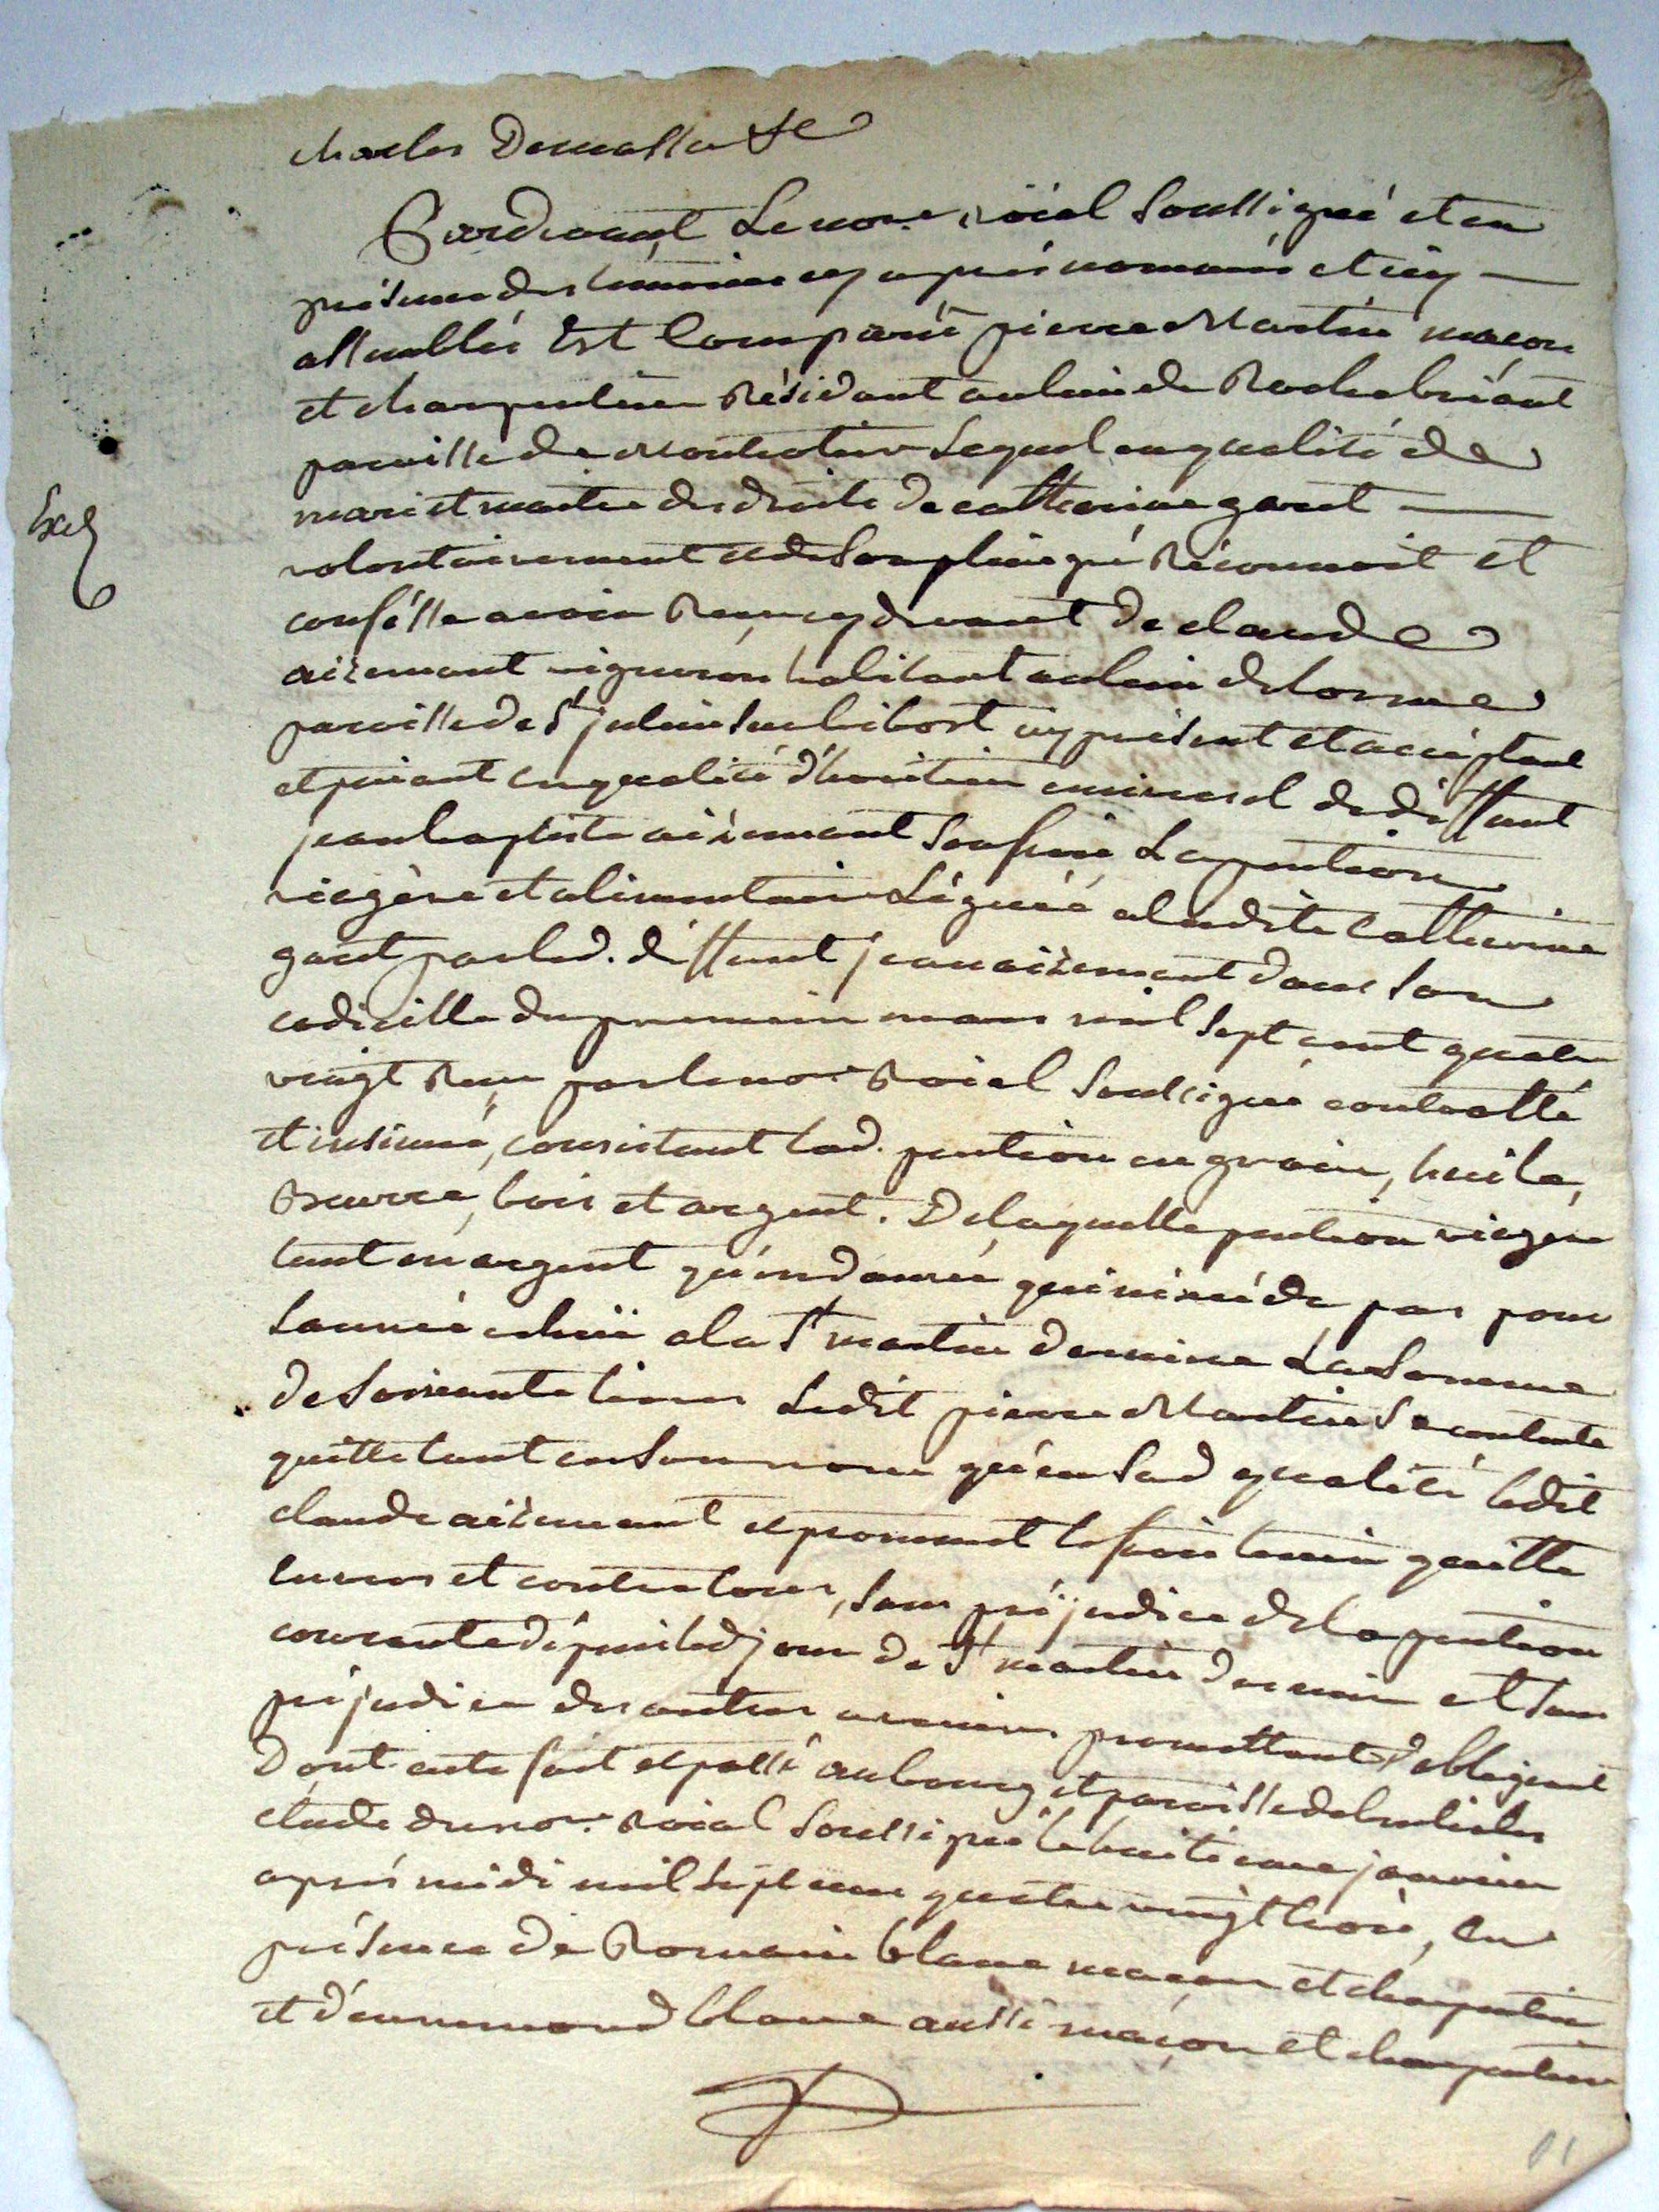 charles
Pardevant Le nore. roïal Soussigné et en
présence des témoins cy après nommés et icy
assemblés Est Comparû pierre Martin maçon
et charpentier Résidant au lieu de Rochebriant
paroisse de Lequel en qualité de
mari et maitre des droits de catherine garet
volontairement et de Son plein gré Réconnoit et
confésse avoir Reçu cy devant de claude
aizemant vigneron habitant au lieu de lorme
paroisse de St julien Sur bibost icy présent et accéptant
et paiant en qualité d'héritier universel de déffunt
jean baptiste aizemant Son frere La pention
viagère et alimentaire Léguée a ladite Catherine
garet par led. déffunt jean aizemant dans Son
codicille du premier mars mil Sept cent quatre
vingt Reçu par le nore. Roial Soussigné controllé
et insinué, consistant lad. pention en grain, huile,
Beurre, bois et argent. De laquelle pention viagere
tant en argent qu'en danrée qui n'éxcéde pas pour
L'année echüe a la St martin derniere La Somme
de Soixante livres Ledit pierre Martin Se contente
quitte tant en Son nom qu'en Sad qualité ledit
claude aizemant et promet le faire tenir quitte
envers et contre tous, Sans préjudice de la pention
courante dépuis led jour de St martin dernier et Sans
préjudice des autres promettant obligeant
Dont acte fait et passé au bourg et paroisse de
étude du nore. Roial Soussigné le huitieme janvier
après midi mil Sept cent quatre vingt trois, En
présence de Romain blanc maçon et charpentier
et d'ennemond blanc aussi maçon et charpentier